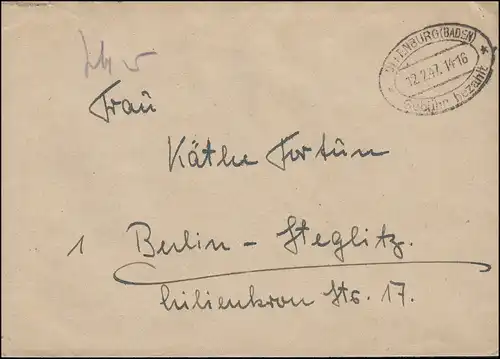 OFFENBURG (BADEN)
12.2.47.14-16
Gebühr bezahlt
Frau
Käthe Fortün
1 Berlin - Steglitz.
Lilienkron Str. 17.